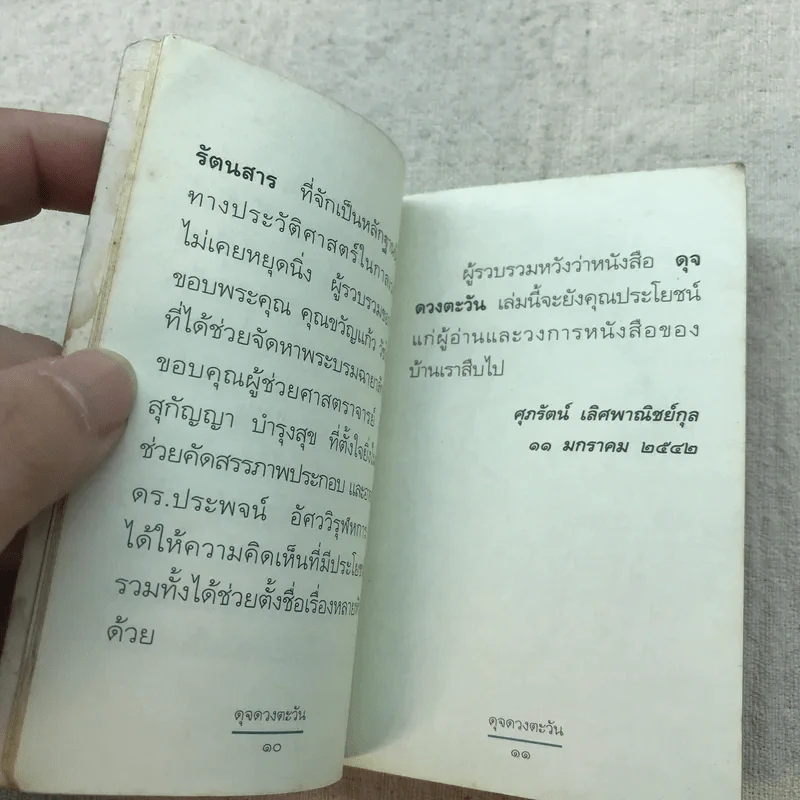 รัตนสาร ที่จักเป็นหลักฐาน
ทางประวัติศาสตร์ในกาล
ไม่เคยหยุดนิ่ง ผู้รวบรวม
ขอบพระคุณ คุณขวัญแก้ว
ที่ได้ช่วยจัดหาพระบรมฉายา
ขอบคุณผู้ช่วยศาสตราจารย์
สุกัญญา บำรุงสุข ที่ตั้งใจ
ช่วยคัดสรรภาพประกอบ และ
ดร.ประพจน์ อัศววิรุฬหการ
ได้ให้ความคิดเห็นที่มีประโย
รวมทั้งได้ช่วยตั้งชื่อเรื่องหลาย
ด้วย
ดุจดวงตะวัน
๑๐
ผู้รวบรวมหวังว่าหนังสือ ดุจ
ดวงตะวัน เล่มนี้จะยังคุณประโยชน์
แก่ผู้อ่านและวงการหนังสือของ
บ้านเราสืบไป
ศุภรัตน์ เลิศพาณิชย์กุล
๑๑ มกราคม ๒๕๔๒
ดุจดวงตะวัน
๑๑